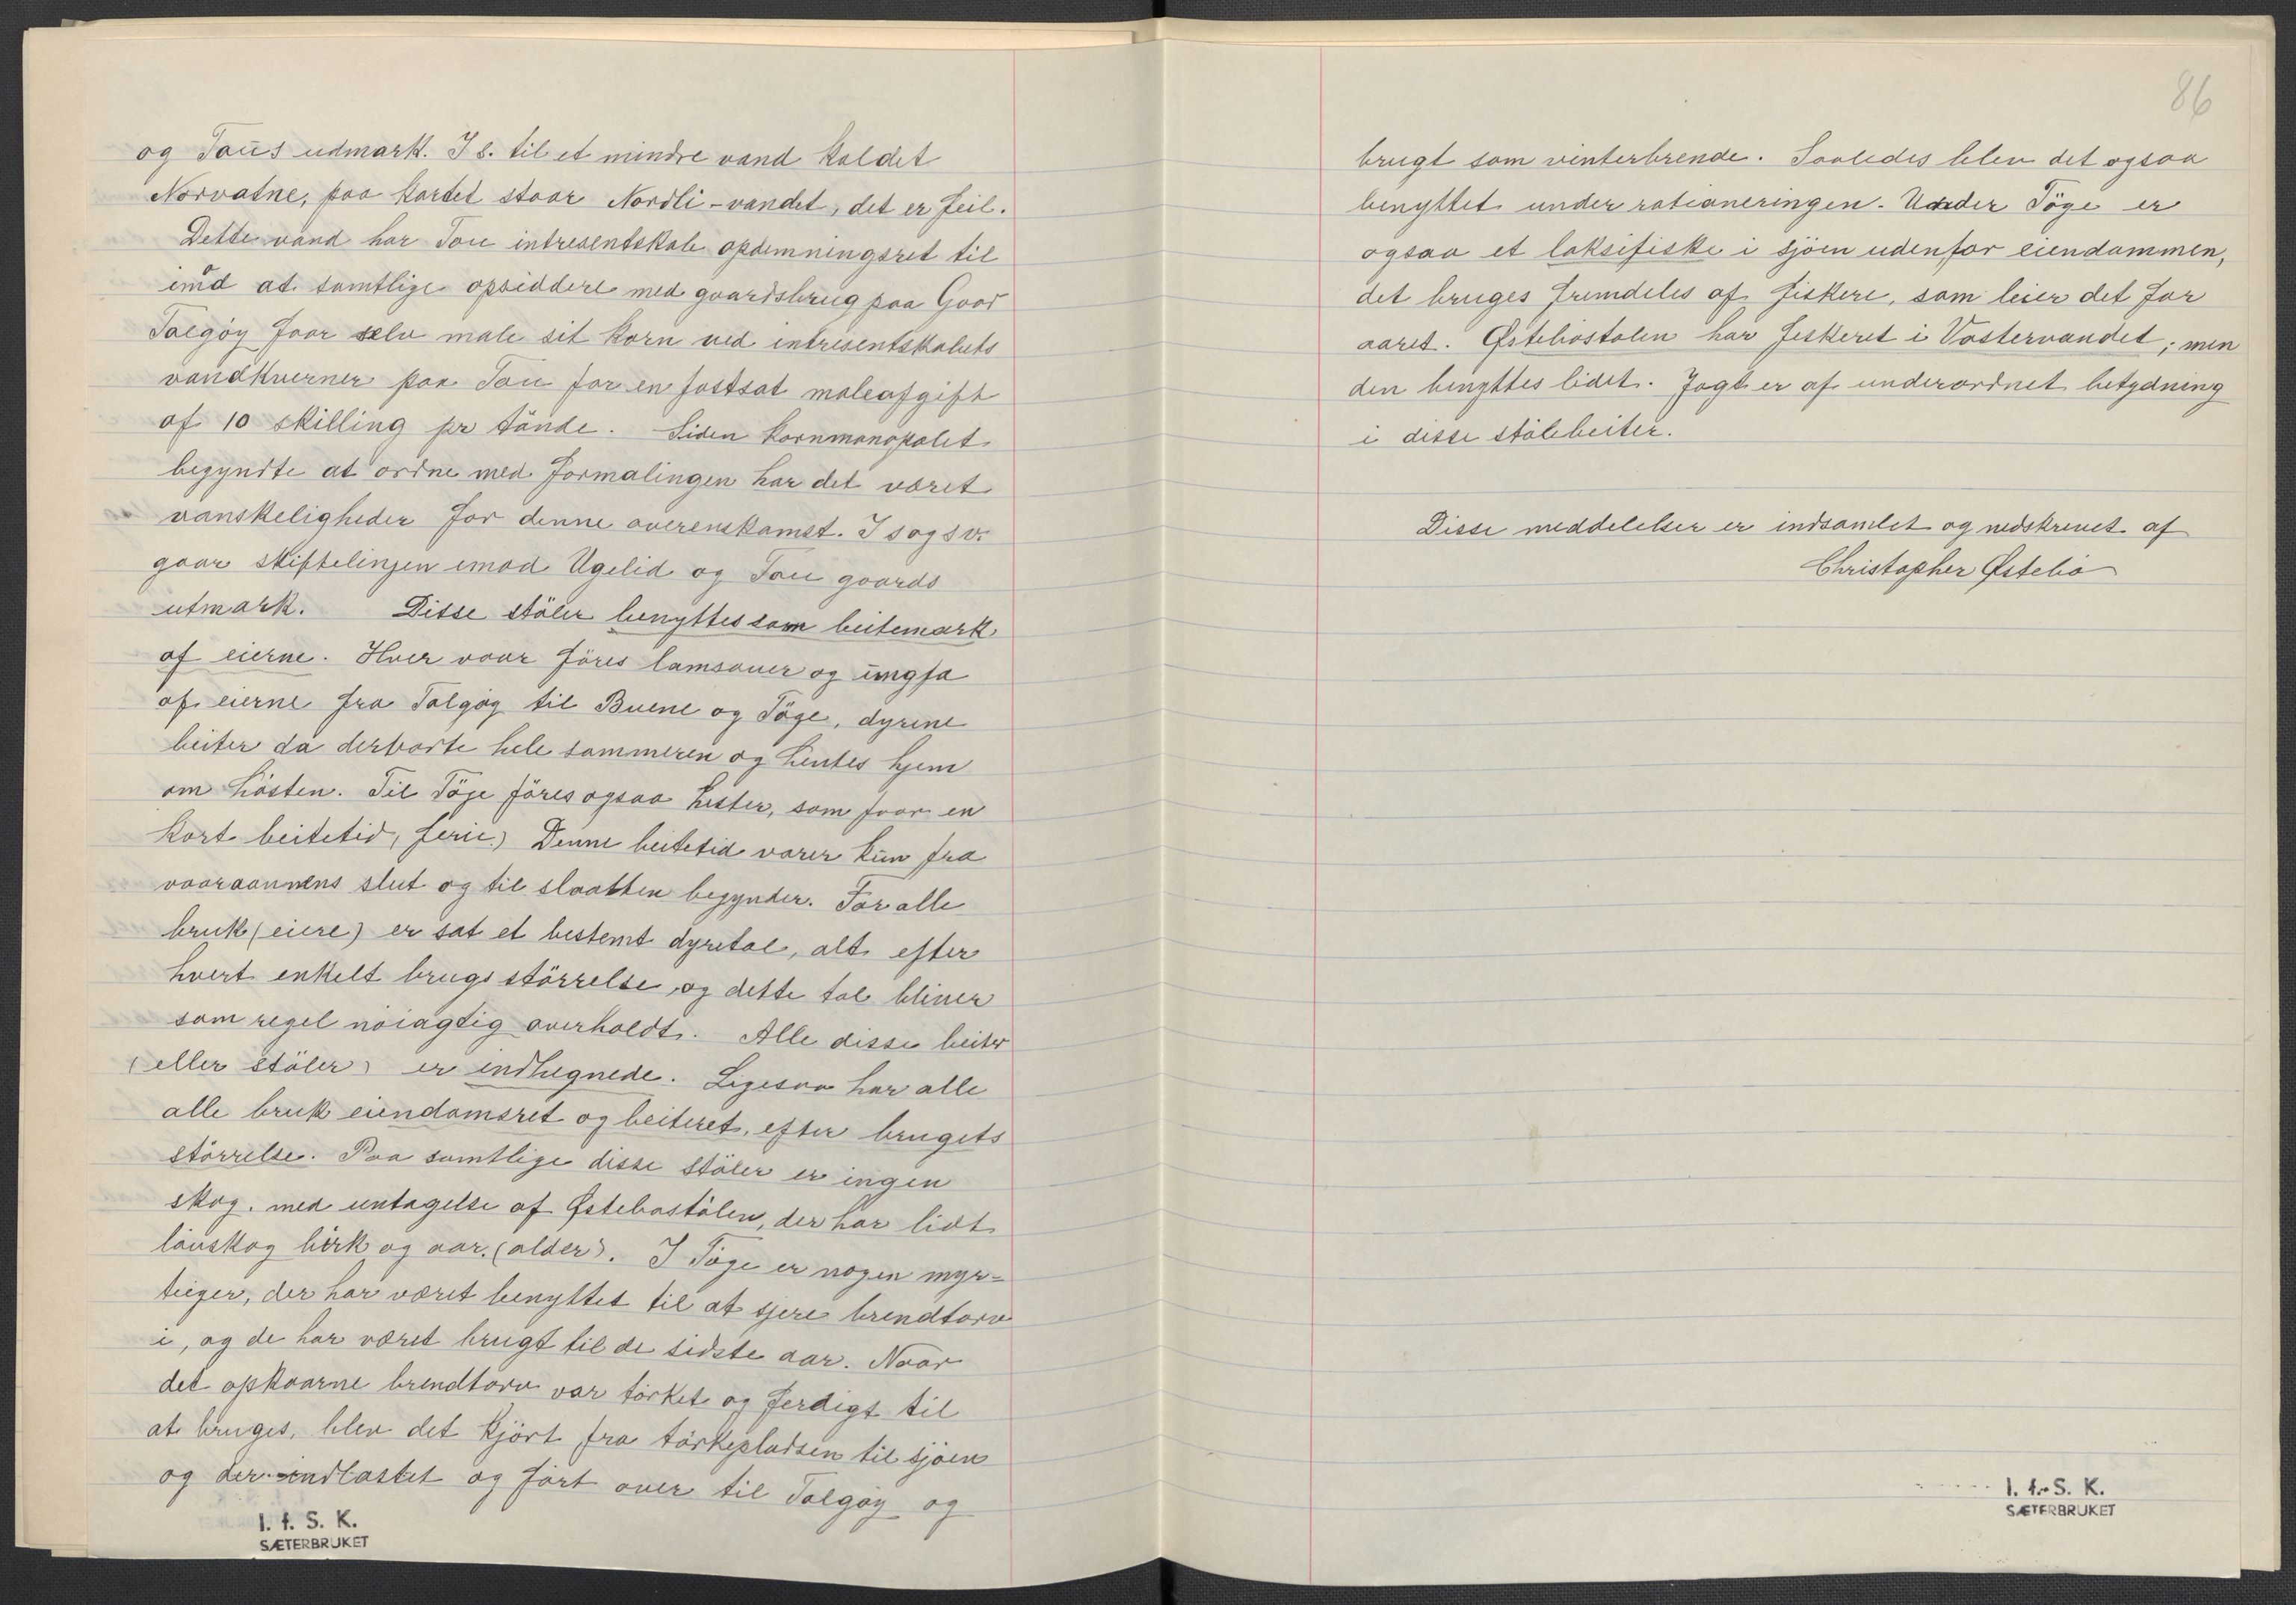 og Taus udmark. I s. til et mindre vand kaldet
Norvatne, paa kartet staar Nordli-vandet, det er feil.
Dette vand har Tau intresentskab opdemningsret til
imod at samtlige opsiddere med gaardsbrug paa Gaar
Talgøy faar selv male sit korn ved intresentskabets
vandkverner paa Tau for en fastsat maleafgift
af 10 skilling pr tønde. Siden kornmonopolet
begyndte at ordne med formalingen har det været
vanskeligheder for denne overenskomst. I s og s v.
gaar skiftelinjen imod Ugelid og Tau gaards
utmark. Disse støler benyttes som beitemark
af eierne. Hver vaar føres lamsauer og ungfæ
af eierne fra Talgøy til Buene og Tøge, dyrene
beiter da derborte hele sommeren og hentes hjem
om høsten. Til Tøge føres ogsaa hester, som faar en
kort beitetid, ferie.) Denne beitetid varer kun fra
vaaraannens slut og til slaatten begynder. For alle
bruk (eiere) er sat et bestemt dyretal, alt efter
hvert enkelt brugs størrelse, og dette tal bliver
som regel nøiagtig overholdt. Alle disse beiter
(eller støler) er indhegnede. Ligesaa har alle
alle bruk eiendomsret og beiteret, efter brugets
størrelse. Paa samtlige disse støler er ingen
skog, med untagelse af Østebøstølen, der har lidt
løuskog birk og aar. (alder). I Tøge er nogen myr=
teiger, der har været benyttet til at sjere brendtorv
i, og de har været brugt til de sidste aar. Naar
det opskaarne brendtorv var tørket og ferdigt til
at bruges, blev det kjørt fra tørkepladsen til sjøen
og der indlastet og ført over til Talgøy og
I. f. S. K.
SÆTERBRUKET
86
brugt som vinterbrende. Saaledes blev det ogsaa
benyttet under rationeringen. Under Tøge er
ogsaa et laksefiske i sjøen udenfor eiendommen,
det bruges fremdeles af fiskere, som leier det for
aaret. Østebøstølen har fiskeret i Vostervandet; men
den benyttes lidet. Jagt er af underordnet betydning
i disse støleberiter.
Disse meddelelser er indsamlet og nedskrevet af
Christopher Østebø
I. f. S. K.
SÆTERBRUKET